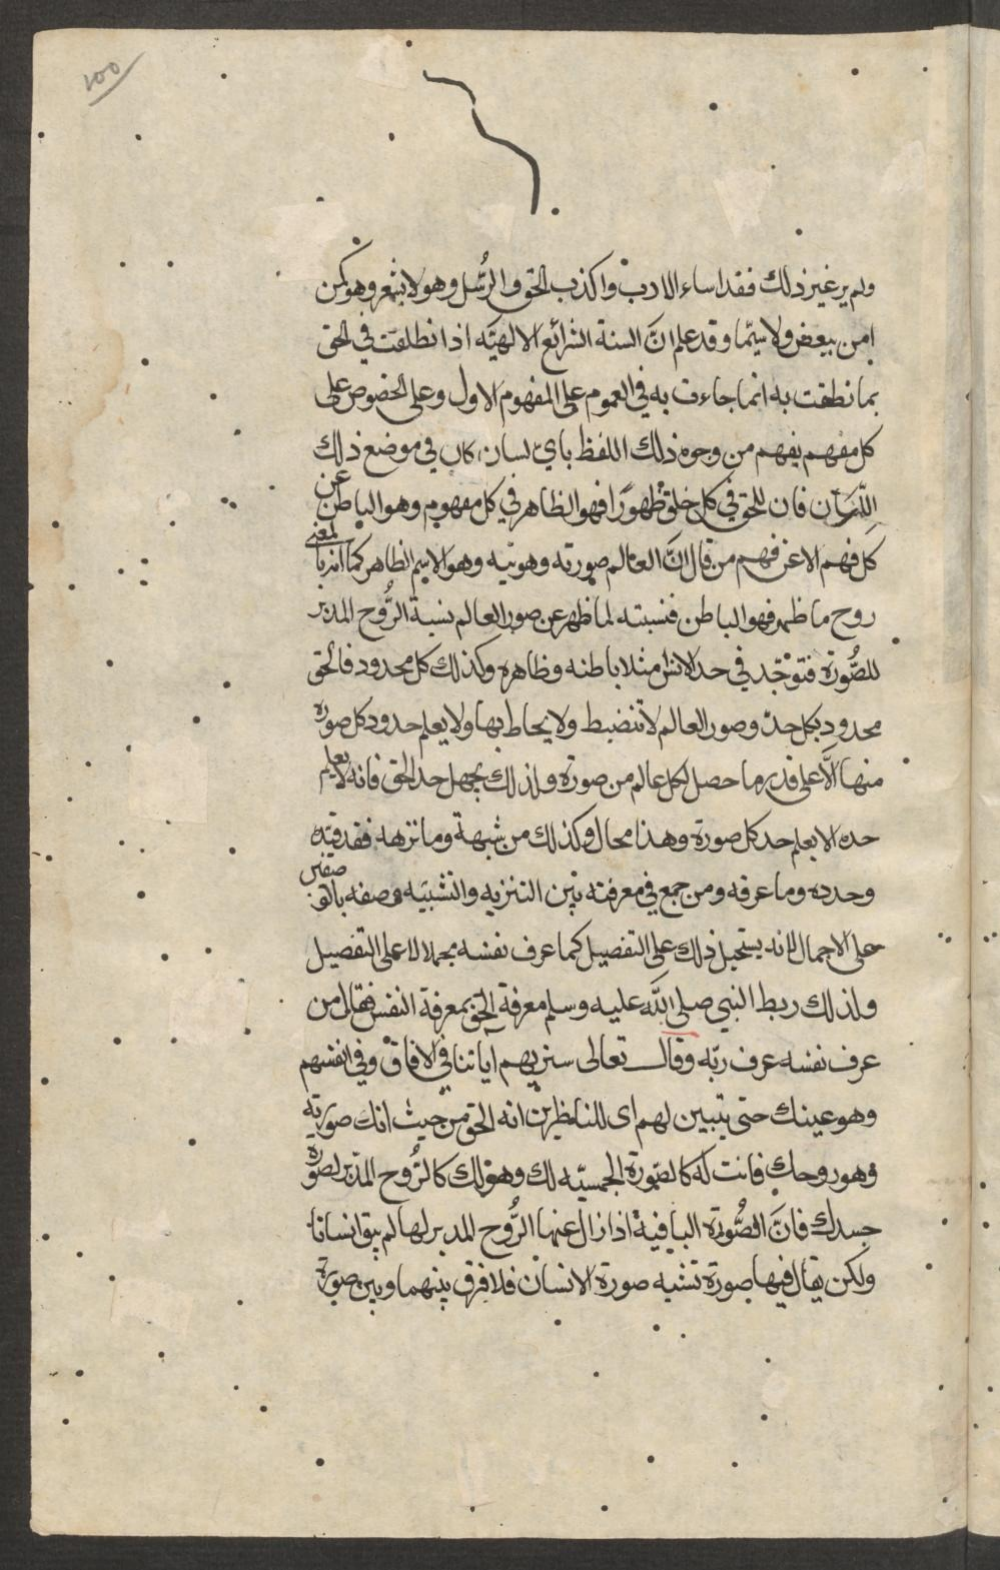 ١٥٥
ولم ير غير ذلك فقد اساء الادب واكذب الحق والرُّسُل وهو لا يشعر وهو كمن
امن ببعض ولا سيّما وقد علم انَّ السنة الشرائع الالهيَّه اذا نطلقت في الحق
بما نطقت به انما جاءت به في العموم على المفهوم الاول وعلى الخصوص على
كل مفهم يفهم من وجوه ذلك اللفظ بايّ لسان كان في موضع ذلك
اللِّسَان فان للحق في كل خلق ظهورًا فهو الظاهر في كل مفهوم وهو الباطن عن
كل فهم الا عن فهم من قال انَّ العالم صورته وهويته وهو الاسم الظاهر كما انه بالمعنى
روح ما ظهر فهو الباطن فنسبته لما ظهر عن صور العالم نسبة الرُّوح المدبر
للصُّورة فتوخذ في حد الانسان مثلا باطنه وظاهره وكذلك كل محدود فالحق
محدود بكل حدّ وصور العالم لا تنضبط ولا يحاط بها ولا يعلم حدود كل صورة
منها الَّا على قدر ما حصل لكل عالم من صورة ولذلك يجهل حد الحق فانه لا يعلم
حده الا يعلم حد كل صورة وهذا محال وكذلك من شبهة وما نزهه فقد قيده
وحدده وما عرفه ومن جمع في معرفته بين التنزيه والتشبيه ووصفه بالوصفين
على الاجمال لانه يستحيل ذلك على التفصيل كما عرف نفسه مجملا لا على التفصيل
ولذلك ربط النبي صلى الله عليه وسلم معرفة الحق بمعرفة النفس فقال من
عرف نفسه عرف ربّه وقال تعالى سنريهم آياتنا في الافاق وفي انفسهم
وهو عينك حتى يتبين لهم اى للناظرين انه الحق من حيث انك صورته
وهو روحك فانت له كالصورة الجسميّه لك وهو لك كالرُّوح المدبر لصورة
جسدك فانَّ الصُّورة الباقية اذا زال عنها الرُّوح المدبر لها لم يبق انسانا
ولكن يقال فيها صورة تشبه صورة الانسان فلا فرق بينهما وبين صورة